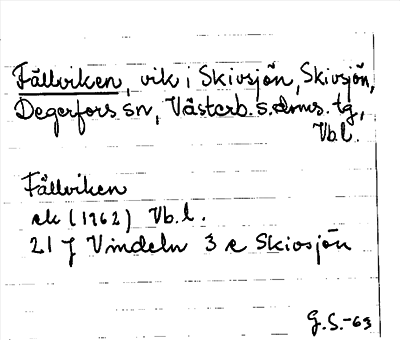 Fällviken, vik i Skivsjön, Skivsjön,
Degerfors sn, Västerb. s. dms. tg,
Vb.l.
Fällviken
ek (1962) Vb.l.
21 J Vindeln 3 e Skivsjön
G.S.-63